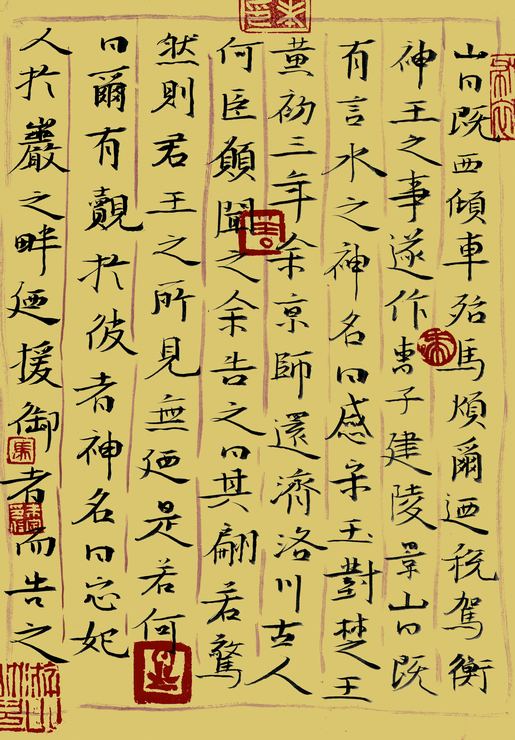 山日既西傾車殆馬煩爾迺税駕衡
神王之事遂作子建陵景山日既
有言水之神名曰感宋玉對楚王
黄初三年余京師還濟洛川古人
何臣願聞之余告之曰其翩若驚
然則君王之所見無迺是若何
曰爾有覿扵彼者神名曰宓妃
人扵巖之畔迺援御者而告之